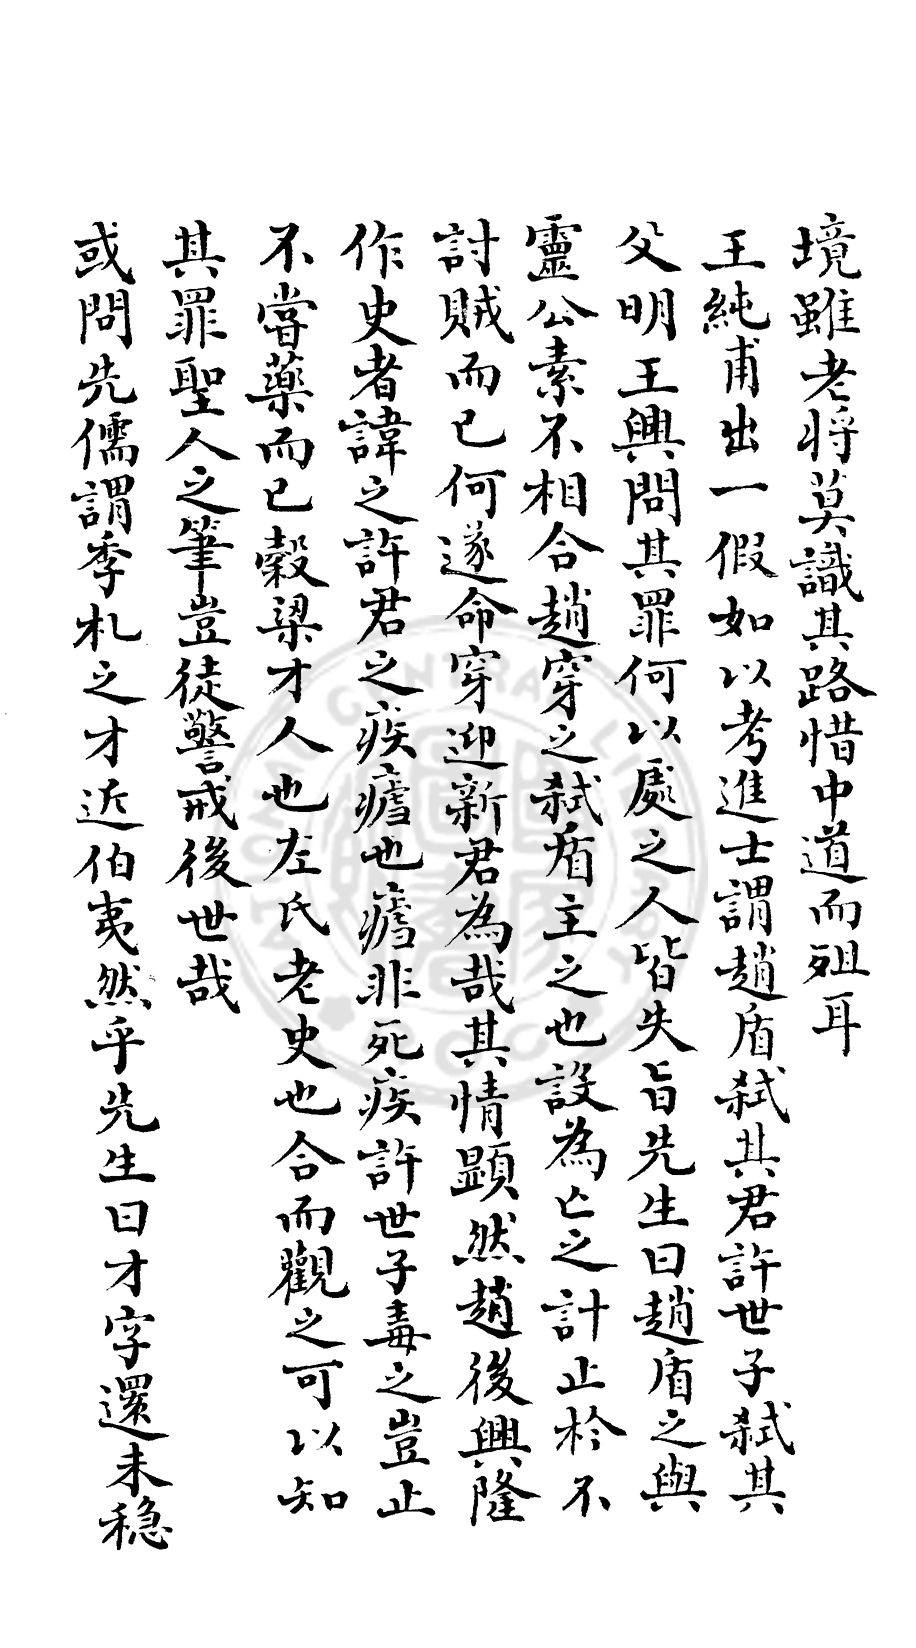 境雖老将莫識其路惜中道而殂耳
王純甫出一假如以考進士謂趙盾弑其君許世子弑其
父明王興問其罪何以處之人皆失旨先生曰趙盾之與
靈公素不相合趙穿之弑盾主之也設為亡之計止於不
討賊而已何遂命穿迎新君為哉其情顕然趙後興隆
作史者諱之許君之疾瘧也瘧非死疾許世子毒之豈止
不嘗藥而已榖梁才人也左氏老史也合而觀之可以知
其罪聖人之筆豈徒警戒後世哉
或問先儒謂季札之才近伯夷然乎先生曰才字還未穏